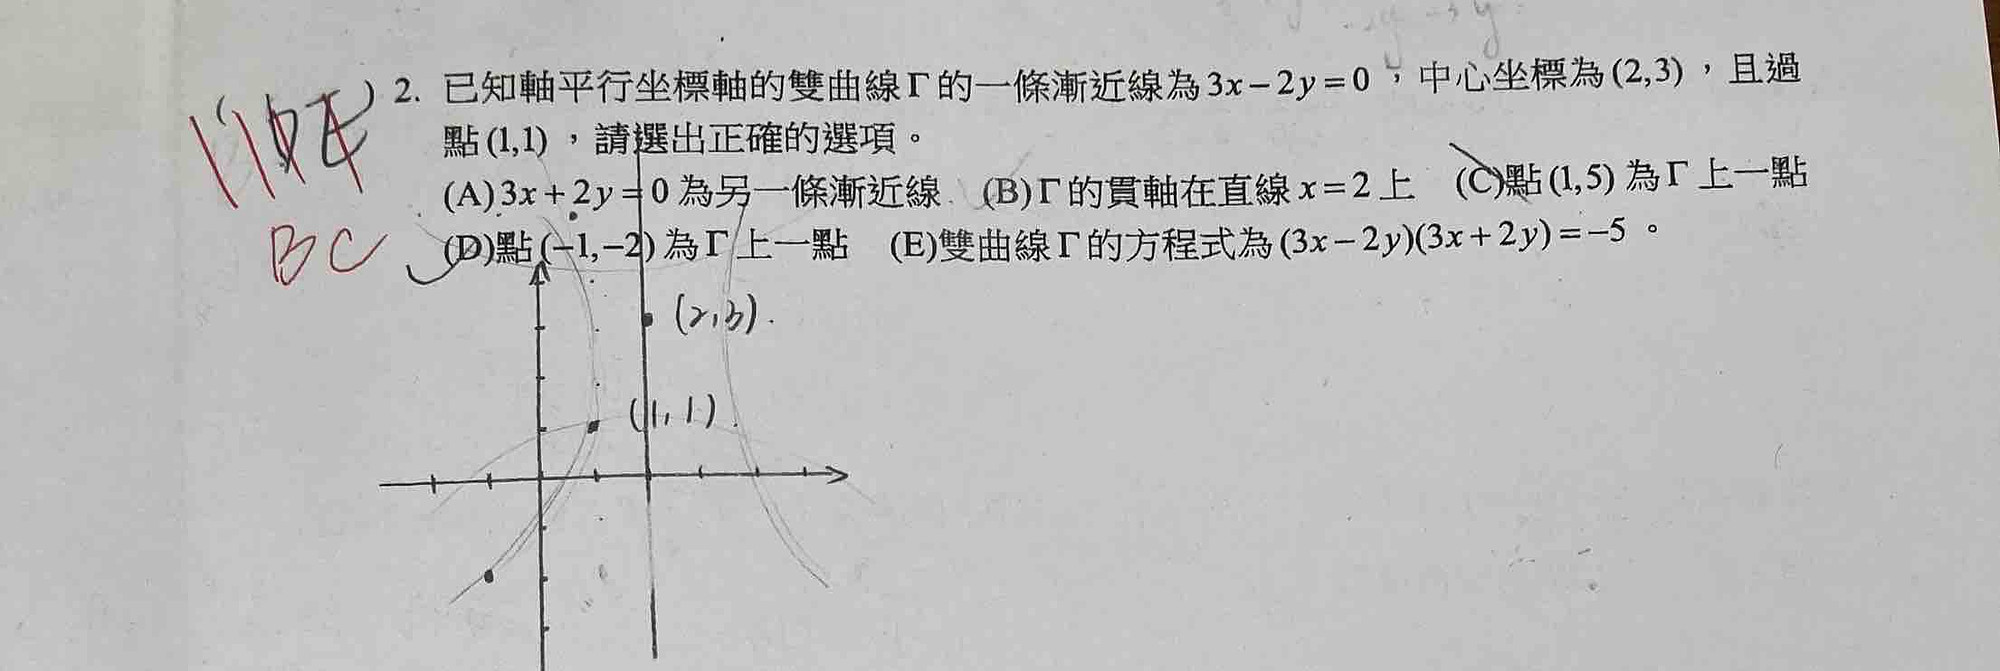 ) 2. 已知軸平行坐標軸的雙曲線Γ的一條漸近線為3x−2y=0，中心坐標為(2,3)，且過
點(1,1)，請選出正確的選項。
(A)3x+2y=0為另一條漸近線 (B)Γ的貫軸在直線x=2上 (C)點(1,5)為Γ上一點
BC (D)點(−1,−2)為Γ上一點 (E)雙曲線Γ的方程式為(3x−2y)(3x+2y)=−5。
(2,3).
(1,1).